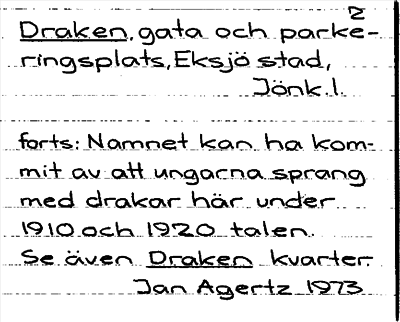 2
Draken, gata och parke-
ringsplats, Eksjö stad,
Jönk.l.
forts: Namnet kan ha kom-
mit av att ungarna sprang
med drakar här under
1910 och 1920 talen.
Se även Draken kvarter.
Jan Agertz 1973